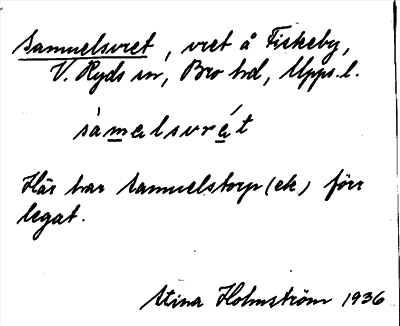 Samuelsvret, vret å Fiskeby,
V. Ryds sn, Bro hd, Upps. l.
sàmelsvrét
Här har Samuelstorp (ek) förr
legat.
Stina Holmström 1936